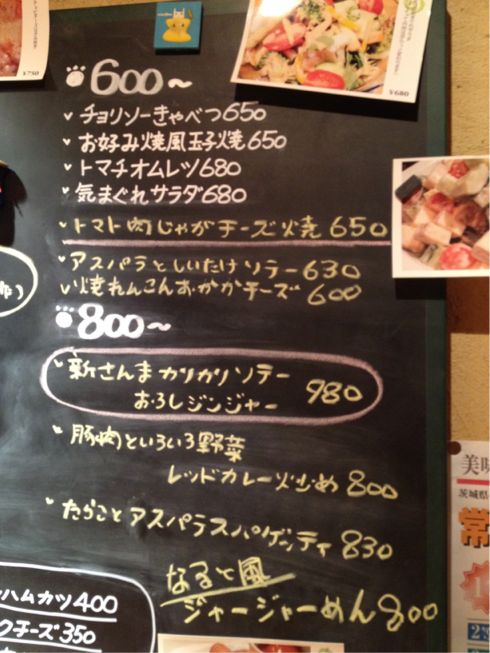 ¥750
¥680
600～
チョリソーきゃべつ650
お好み焼風玉子焼650
トマチオムレツ680
気まぐれサラダ680
トマト肉じゃがチーズ焼 650
アスパラとしいたけソテー630
焼れんこんおかかチーズ 600
800～
新さんまカリカリソテー
おろしジンジャー 980
豚肉といろいろ野菜
レッドカレー炒め 800
たらことアスパラスパゲッティ 830
なると風
ジャージャーめん 800
ハムカツ 400
クチーズ 350
美味
茨城県
常